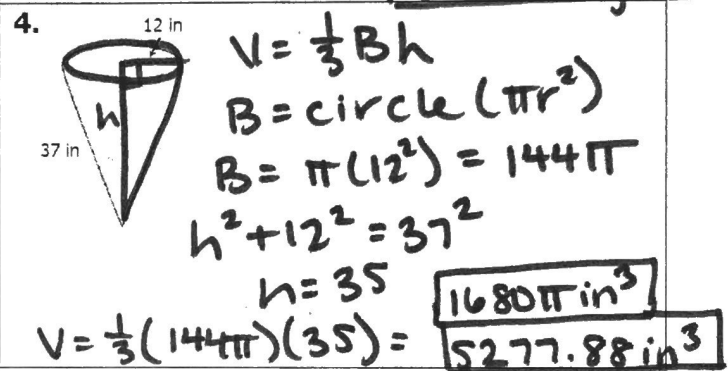 4.
12 in
h
37 in
V = 1/3 Bh
B = circle (πr²)
B = π(12²) = 144π
h² + 12² = 37²
h = 35
V = 1/3 (144π)(35) =
1680π in³
5277.88 in³